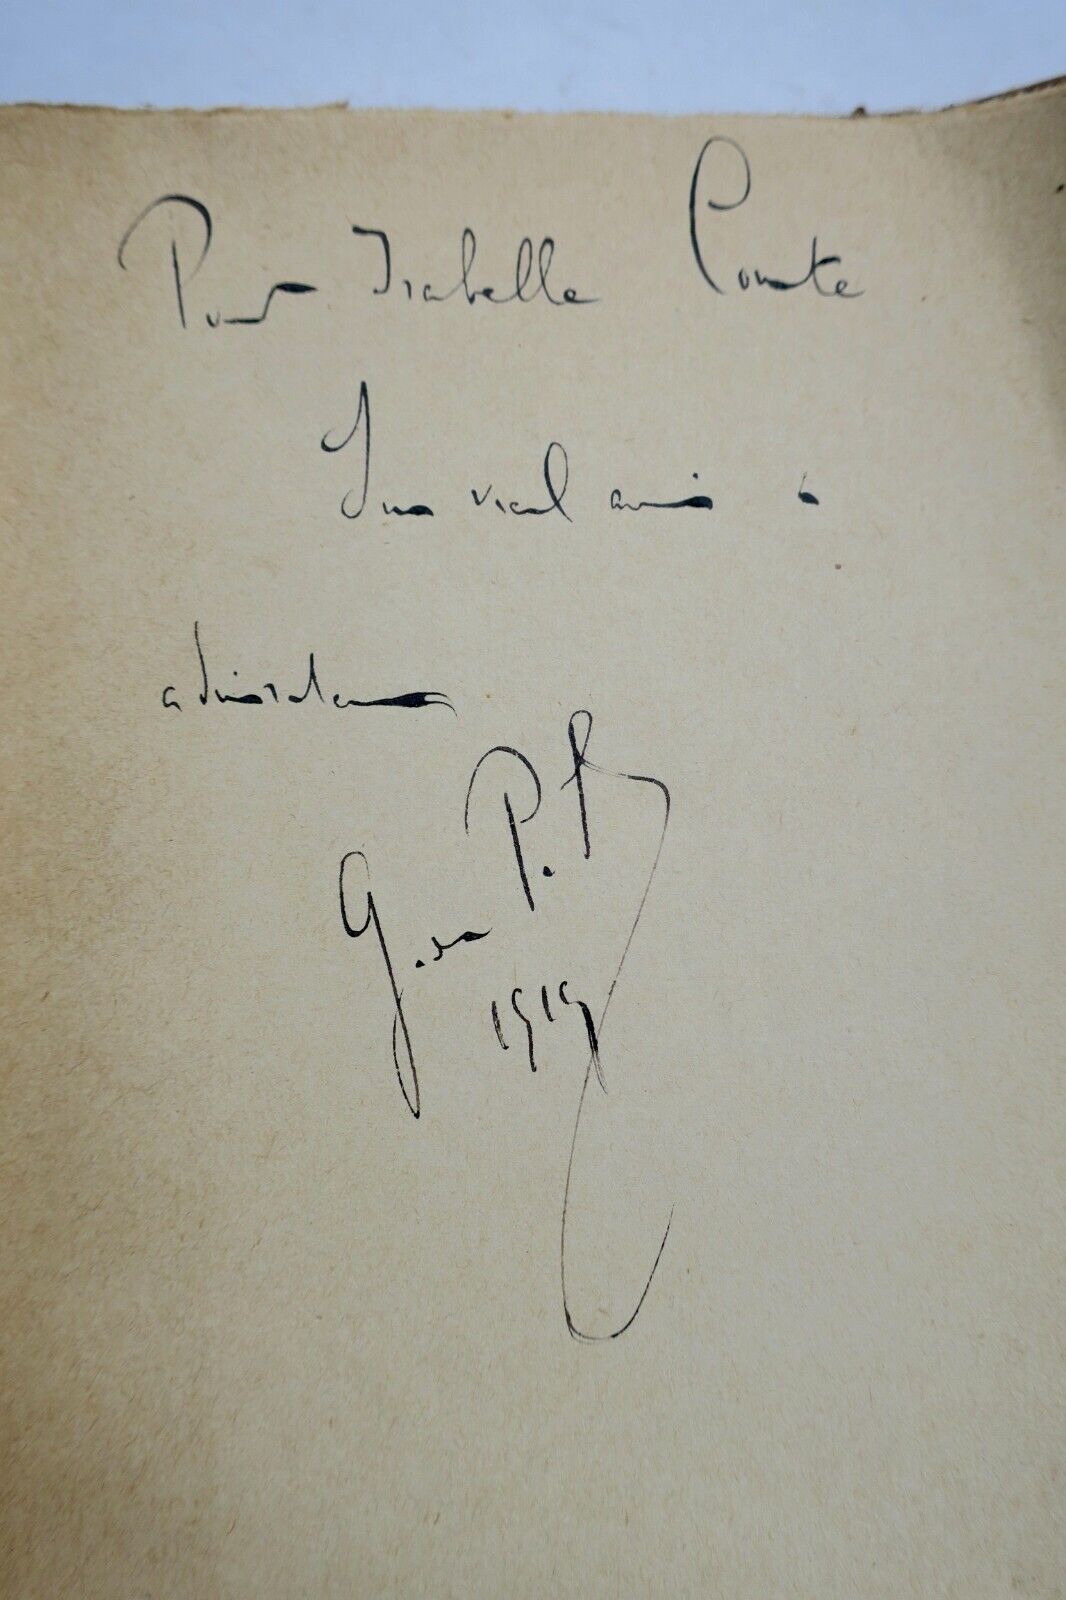 Pour Isabelle Comte
Son vieil ami &
admirateur
G. de P. f
1919